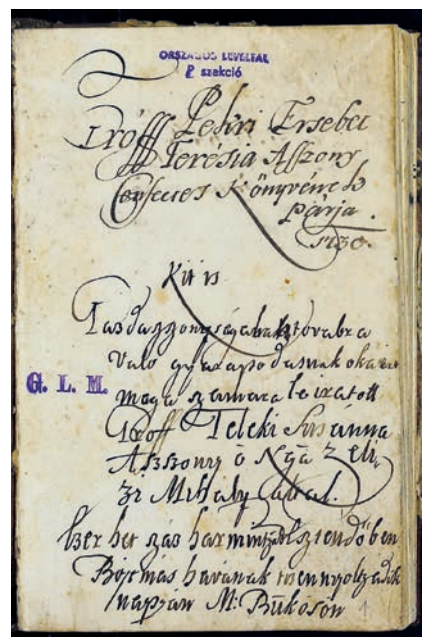 ORSZÁGOS LEVÉLTÁR
P szekció
Gróff Pekri Ersebet
Terésia Asszony
Confectes Könyvének
Párja.
1730.
Kit is
Gasdaggzonyságabank továbra
valo gyarapodasnak oka
maga szamara leiratott
G. L. M.
Groff Teleki Susánna
Aszszony ö Nga
Mihaly által.
Ezer het száz harmintz esztendöben
Böjtmás havának
napján M: Bükösön
1